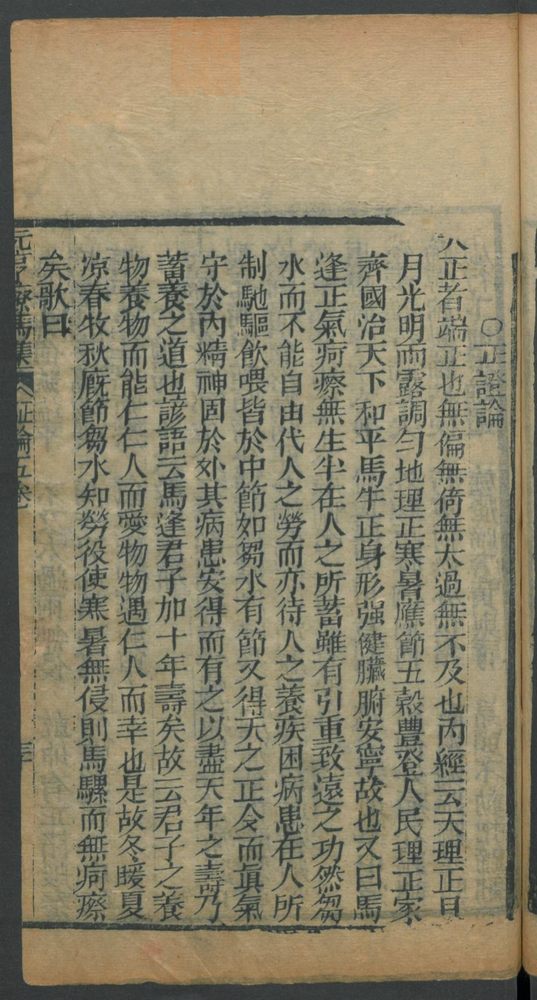 ○正證論
夫正者端正也無偏無倚無太過無不及也內經云天理正日
月光明雨露調勻地理正寒暑應節五穀豐登人民理正家
齊國治天下和平馬牛正身形强健臟腑安寧故也又曰馬
逢正氣疴瘵無生半在人之所蓄雖有引重致遠之功然芻
水而不能自由代人之勞而亦待人之養疾困病患在人所
制馳驅飲喂皆於中節如芻水有節又得天之正令而眞氣
守於內精神固於外其病患安得而有之以盡天年之壽乃
蓄養之道也諺語云馬逢君子加十年壽矣故云君子之養
物養物而能仁仁人而愛物物遇仁人而幸也是故冬暖夏
凉春牧秋廐節芻水知勞役使寒暑無侵則馬騾而無疴瘵
矣歌曰
元亨療馬集 證論五卷 三